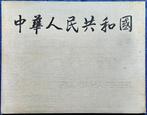 中華人民共和國